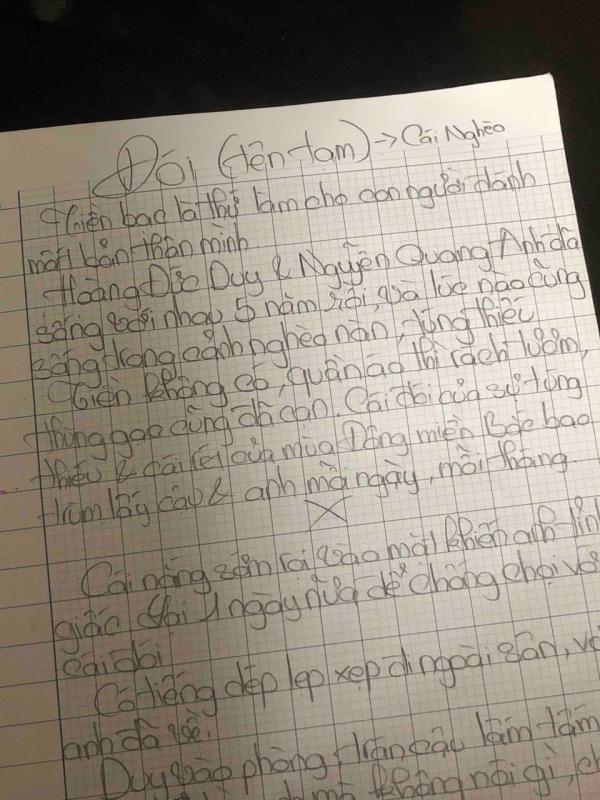 Đói (tên tạm) → Cái Nghèo
Tiền bạc là thứ làm cho con người đánh
mất bản thân mình
Hoàng Đức Duy & Nguyễn Quang Anh đã
sống với nhau 5 năm rồi, và lúc nào cũng
sống trong cảnh nghèo nàn, túng thiếu
Tiền không có, quần áo thì rách lươm,
thùng gạo cũng đã cạn. Cái đói của sự túng
thiếu & cái rét của mùa Đông miền Bắc bao
trùm lấy cậu & anh mỗi ngày, mỗi tháng.
X
Cái nắng sớm rọi vào mặt khiến anh tỉnh
giấc 1 ngày nữa để chống chọi với
cái đói
Có tiếng dép lẹp xẹp đi ngoài sân,
anh đã về.
Duy vào phòng, trán cậu lấm tấm
mà không nói gì,